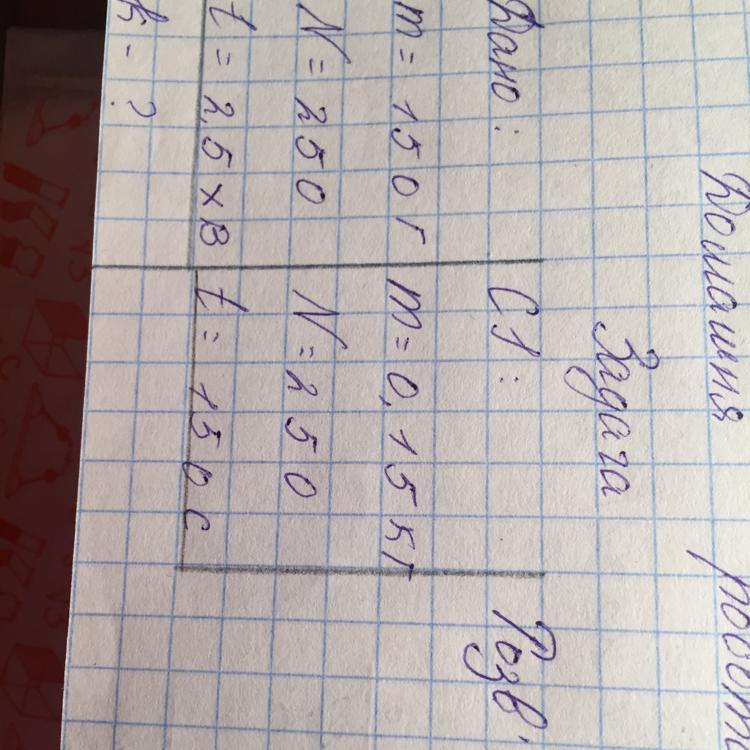 Домашня робот
Задача
Дано: СІ: Розв.
m = 150 г m = 0,15 кг
N = 250 N = 250
t = 2,5 хв t = 150 с
k - ?